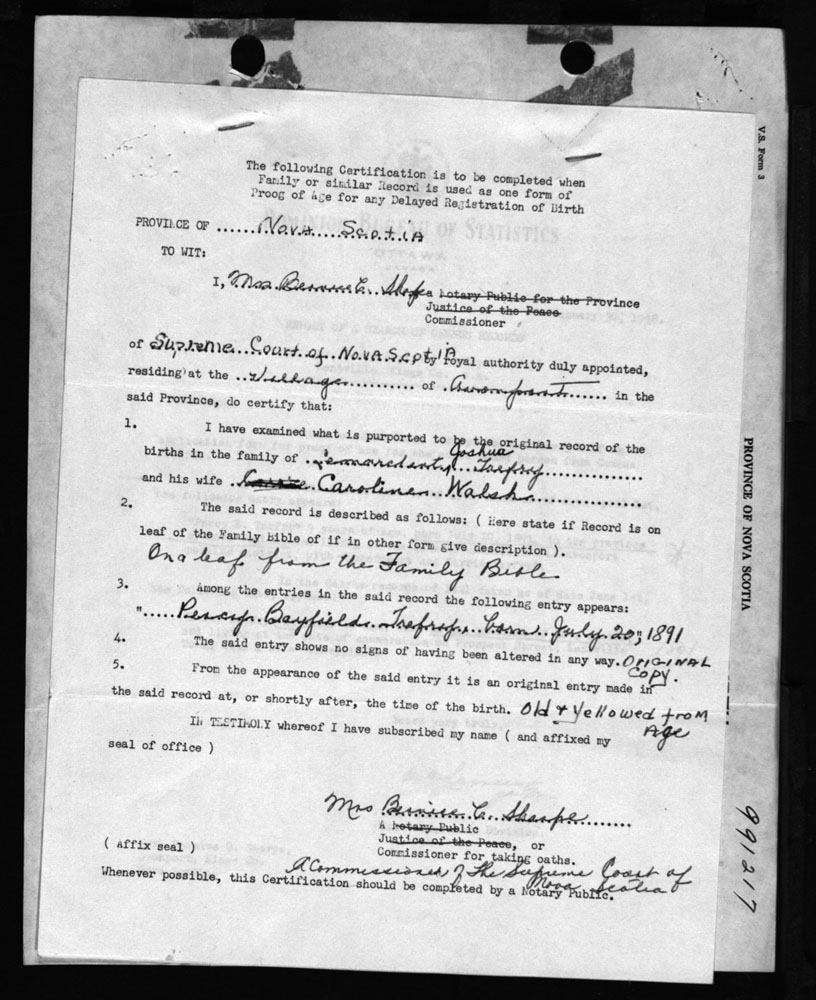 The following Certification is to be completed when
Family or similar Record is used as one form of
Proog of Age for any Delayed Registration of Birth
PROVINCE OF ...... Nova Scotia
TO WIT:
I, Mrs. Bernice C. Sharpe a Notary Public for the Province
Justice of the Peace
Commissioner
of Supreme Court of Nova Scotia by royal authority duly appointed,
residing at the ..Village........... of .......... in the
said Province, do certify that:
1. I have examined what is purported to be the original record of the
Joshua
births in the family of ... Trefry................
and his wife Carrie Caroline.. Walsh..................
2. The said record is described as follows: ( Here state if Record is on
leaf of the Family Bible of if in other form give description ).
On a leaf from the Family Bible
3. Among the entries in the said record the following entry appears:
"..... Percy. Bayfield.. Trefry.. born.. July 20, 1891
4. The said entry shows no signs of having been altered in any way. ORIGINAL
COPY.
5. From the appearance of the said entry it is an original entry made in
the said record at, or shortly after, the time of the birth. Old & Yellowed from
Age
IN TESTIMOLY whereof I have subscribed my name ( and affixed my
seal of office )
Mrs Bernice C. Sharpe........
A Notary Public
Justice of the Peace, or
( Affix seal ) Commissioner for taking oaths.
A Commissioner of The Supreme Court of
Nova Scotia
Whenever possible, this Certification should be completed by a Notary Public.
V.S. Form 3
PROVINCE OF NOVA SCOTIA
991217
DOMINION BUREAU OF STATISTICS
OTTAWA